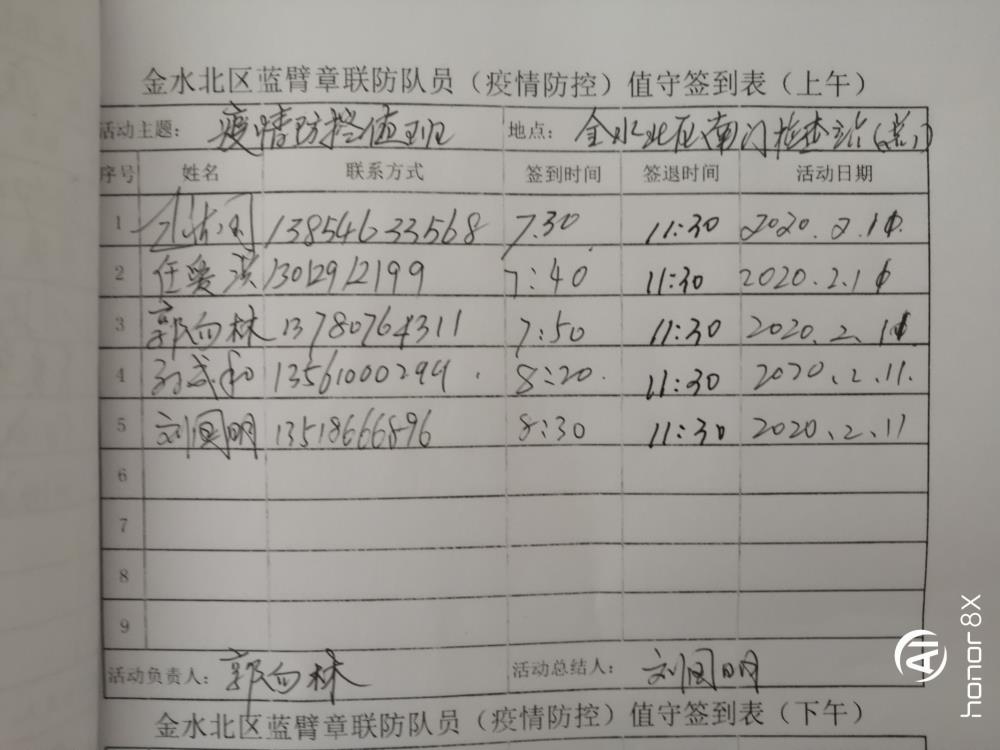 金水北区蓝臂章联防队员（疫情防控）值守签到表（上午）
活动主题: 疫情防控值班 地点: 金水北区南门检查站
序号 姓名 联系方式 签到时间 签退时间 活动日期
1 13854633568 7.30 11:30 2020.2.11
2 任爱滨 13012912199 7:40 11:30 2020.2.11
3 郭向林 13780764311 7:50 11:30 2020.2.11
4 孙成和 13561000294 8:20 11:30 2020.2.11.
5 刘国明 13518666896 8:30 11:30 2020.2.11
6
7
8
9
活动负责人: 郭向林 活动总结人: 刘国明
金水北区蓝臂章联防队员（疫情防控）值守签到表（下午）
AI
honor 8X